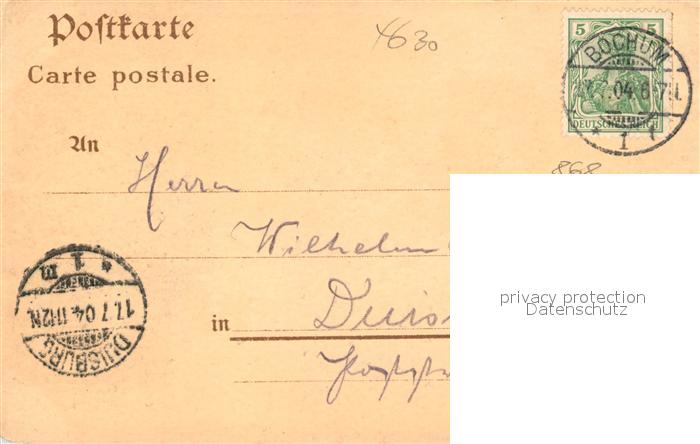 Postkarte
Carte postale.
4630
5 5
BOCHUM
17.7.04.6-7N.
DEUTSCHES REICH
* 1 f
868
An
Herrn
Wilhelm
* 1 m
17.7.04.11-12N.
DUISBURG
in
Duis
privacy protection
Datenschutz